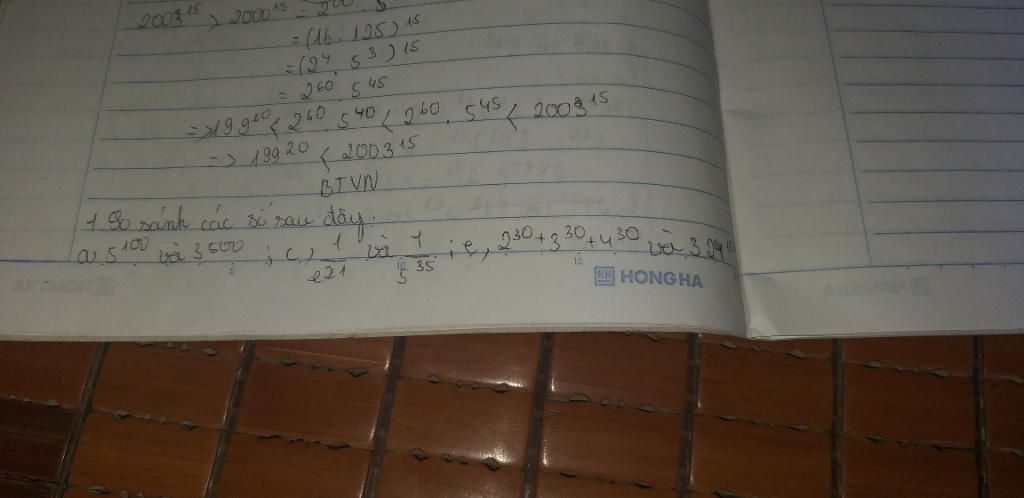 2003¹⁵ > 2000¹⁵ =
= (16 . 125)¹⁵
= (2⁴ . 5³)¹⁵
= 2⁶⁰ . 5⁴⁵
=> 199²⁰ < 2⁶⁰ . 5⁴⁰ < 2⁶⁰ . 5⁴⁵ < 2003¹⁵
=> 199²⁰ < 2003¹⁵
BTVN
1. So sánh các số sau đây.
a, 5¹⁰⁰ và 3⁵⁰⁰ ; c, 1/2²¹ và 1/5³⁵ ; e, 2³⁰ + 3³⁰ + 4³⁰ và 3.24
HONG HA